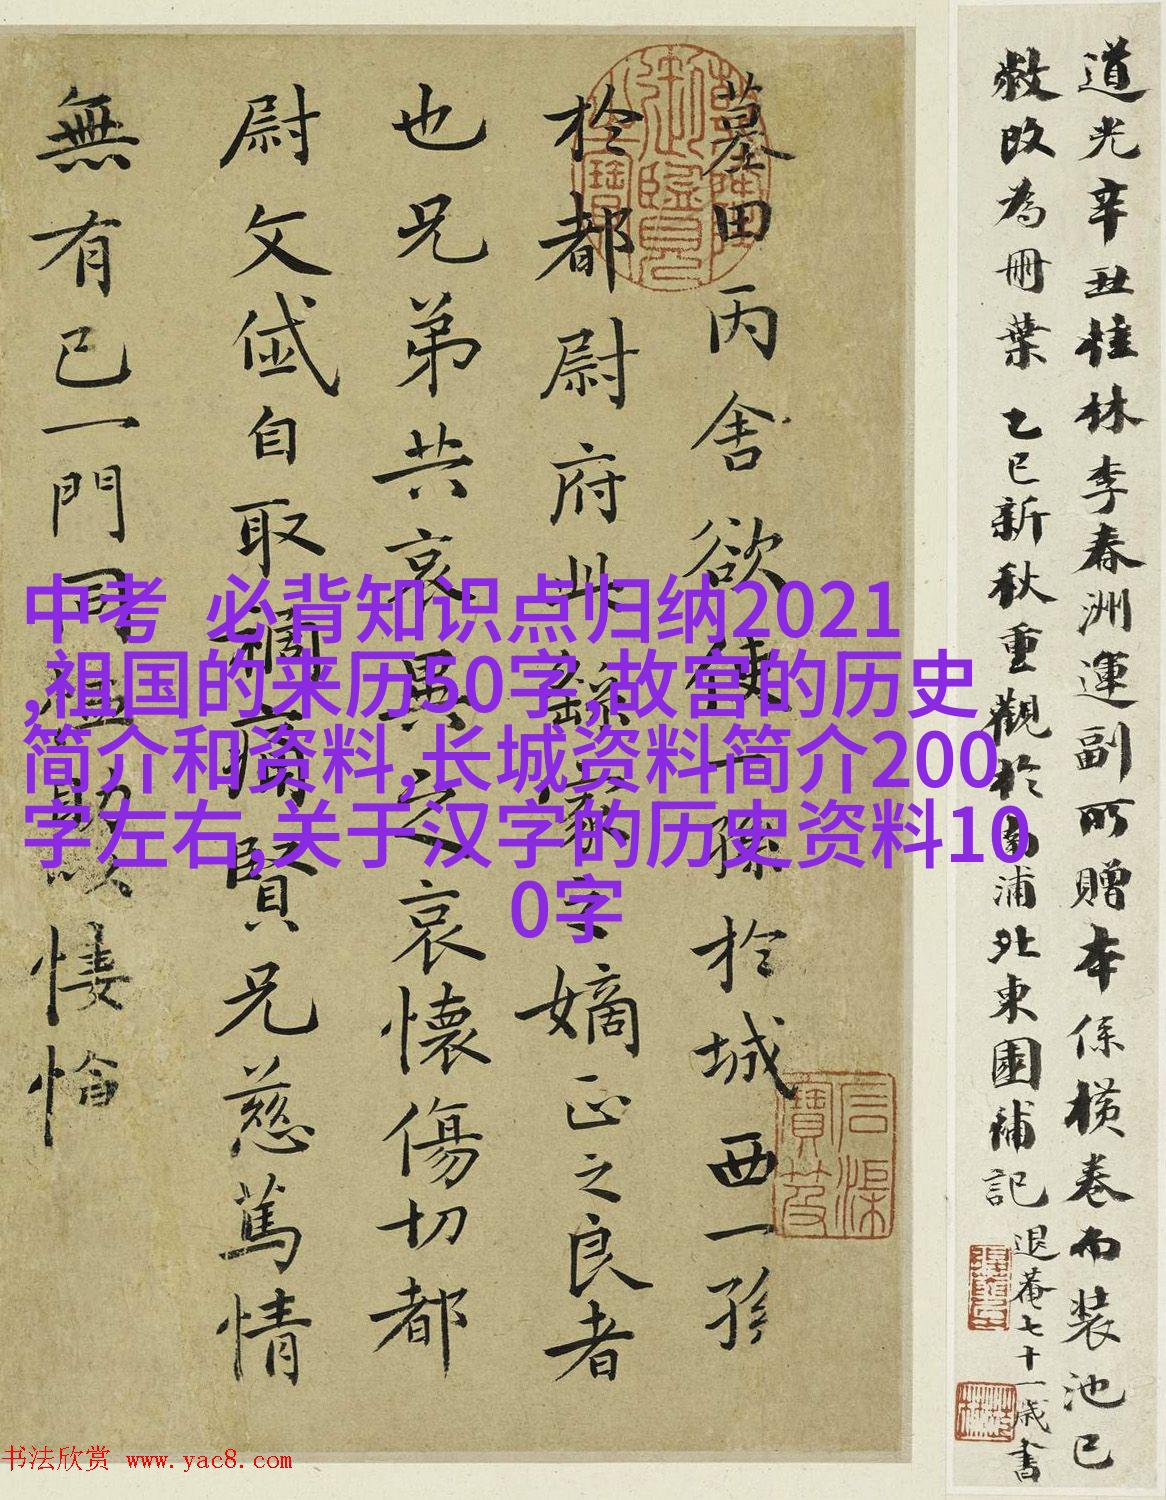 道光辛丑桂林李春洲運副所贈本係橫卷而裝池已
敝改為冊葉 乙巳新秋重觀於南浦北東園補記 退菴七十一歲書
墓田丙舍欲使一孫於城西一孫
於都尉府此繇家之嫡正之良者
也兄弟共哀異之哀懷傷切都
尉文岱自取禍痛賢兄慈篤情
無有已一門同恤助以悽愴
中考 必背知识点归纳2021
,祖国的来历50字,故宫的历史
简介和资料,长城资料简介200
字左右,关于汉字的历史资料10
0字
书法欣赏 www.yac8.com